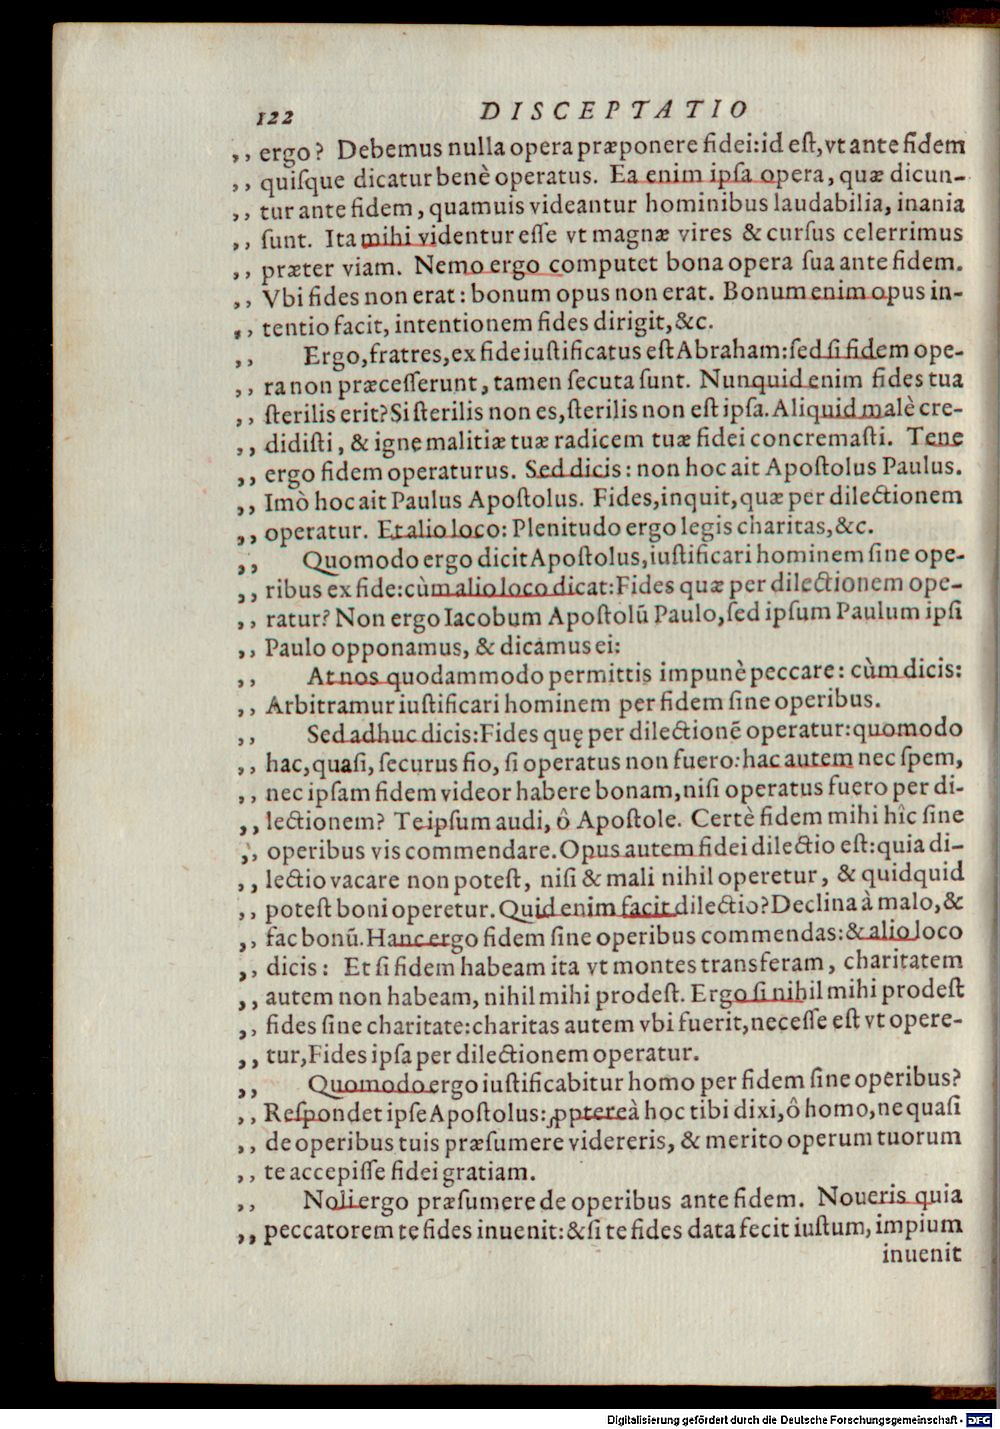 122 DISCEPTATIO
,, ergo? Debemus nulla opera præponere fidei: id eſt, vt ante fidem
,, quiſque dicatur benè operatus. Ea enim ipſa opera, quæ dicun-
,, tur ante fidem, quamuis videantur hominibus laudabilia, inania
,, ſunt. Ita mihi videntur eſſe vt magnæ vires & curſus celerrimus
,, præter viam. Nemo ergo computet bona opera ſua ante fidem.
,, Vbi fides non erat: bonum opus non erat. Bonum enim opus in-
,, tentio facit, intentionem fides dirigit, &c.
,, Ergo, fratres, ex fide iuſtificatus eſt Abraham: ſed ſi fidem ope-
,, ra non præceſſerunt, tamen ſecuta ſunt. Nunquid enim fides tua
,, ſterilis erit? Si ſterilis non es, ſterilis non eſt ipſa. Aliquid malè cre-
,, didiſti, & igne malitiæ tuæ radicem tuæ fidei concremaſti. Tene
,, ergo fidem operaturus. Sed dicis: non hoc ait Apoſtolus Paulus.
,, Imò hoc ait Paulus Apoſtolus. Fides, inquit, quæ per dilectionem
,, operatur. Et alio loco: Plenitudo ergo legis charitas, &c.
,, Quomodo ergo dicit Apoſtolus, iuſtificari hominem ſine ope-
,, ribus ex fide: cùm alio loco dicat: Fides quæ per dilectionem ope-
,, ratur? Non ergo Iacobum Apoſtolū Paulo, ſed ipſum Paulum ipſi
,, Paulo opponamus, & dicamus ei:
,, At nos quodammodo permittis impunè peccare: cùm dicis:
,, Arbitramur iuſtificari hominem per fidem ſine operibus.
,, Sed adhuc dicis: Fides quę per dilectionē operatur: quomodo
,, hac, quaſi, ſecurus fio, ſi operatus non fuero: hac autem nec ſpem,
,, nec ipſam fidem videor habere bonam, niſi operatus fuero per di-
,, lectionem? Teipſum audi, ô Apoſtole. Certè fidem mihi hîc ſine
,, operibus vis commendare. Opus autem fidei dilectio eſt: quia di-
,, lectio vacare non poteſt, niſi & mali nihil operetur, & quidquid
,, poteſt boni operetur. Quid enim facit dilectio? Declina à malo, &
,, fac bonū. Hanc ergo fidem ſine operibus commendas: & alio loco
,, dicis: Et ſi fidem habeam ita vt montes transferam, charitatem
,, autem non habeam, nihil mihi prodeſt. Ergo ſi nihil mihi prodeſt
,, fides ſine charitate: charitas autem vbi fuerit, neceſſe eſt vt opere-
,, tur, Fides ipſa per dilectionem operatur.
,, Quomodo ergo iuſtificabitur homo per fidem ſine operibus?
,, Reſpondet ipſe Apoſtolus: ꝓpptereà hoc tibi dixi, ô homo, ne quaſi
,, de operibus tuis præſumere videreris, & merito operum tuorum
,, te accepiſſe fidei gratiam.
,, Noli ergo præſumere de operibus ante fidem. Noueris quia
,, peccatorem te fides inuenit: & ſi te fides data fecit iuſtum, impium
inuenit
Digitalisierung gefördert durch die Deutsche Forschungsgemeinschaft - DFG